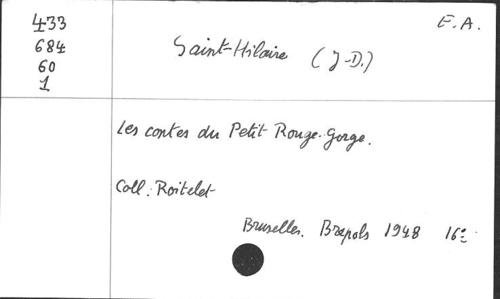 433
684
60
1
E.A.
Saint-Hilaire (J-D.)
Les contes du Petit Rouge-Gorge.
Coll: Roitelet
Bruxelles. Brepols 1948 16º